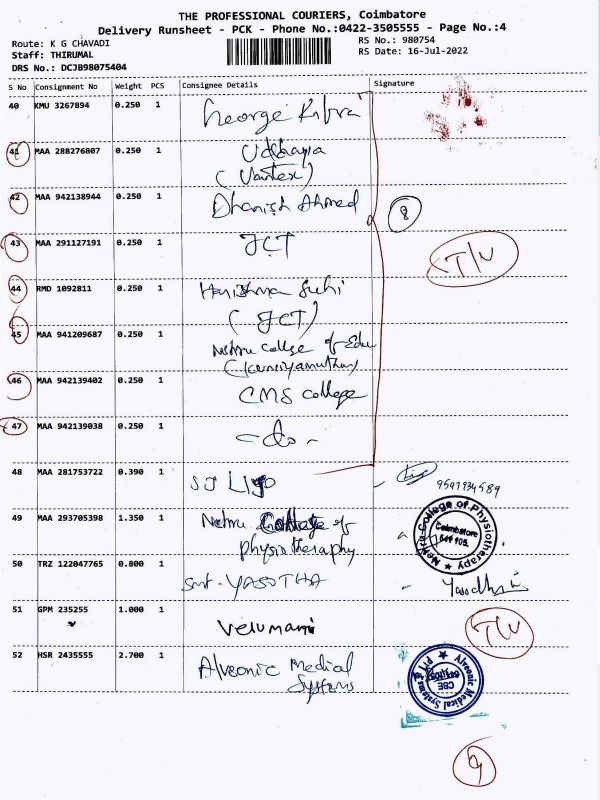 THE PROFESSIONAL COURIERS, Coimbatore
Delivery Runsheet - PCK - Phone No.:0422-3505555 - Page No.:4
Route: K G CHAVADI
Staff: THIRUMAL
DRS No.: DCJB98075404
RS No.: 980754
RS Date: 16-Jul-2022
S No Consignment No Weight PCS Consignee Details Signature
40 KMU 3267894 0.250 1 George
41 MAA 288276807 0.250 1 Udhaya
42 MAA 942138944 0.250 1 Dhanish Ahmed
8
43 MAA 291127191 0.250 1 JCT
T/U
44 RMD 1092811 0.250 1
(JCT)
45 MAA 941209687 0.250 1 Nehru College of Edu
46 MAA 942139402 0.250 1 CMS College
47 MAA 942139038 0.250 1 -do-
48 MAA 281753722 0.390 1 SJ
49 MAA 293705398 1.350 1 Nehru College of
physiotheraphy
Nehru College of Physiotherapy
Coimbatore
641 105.
50 TRZ 122047765 0.800 1 Smt. YASOTHA
51 GPM 235255 1.000 1 Velumani
T/U
52 HSR 2435555 2.700 1 Alveonic Medical
Systems
Alveonic Medical Systems
CBE